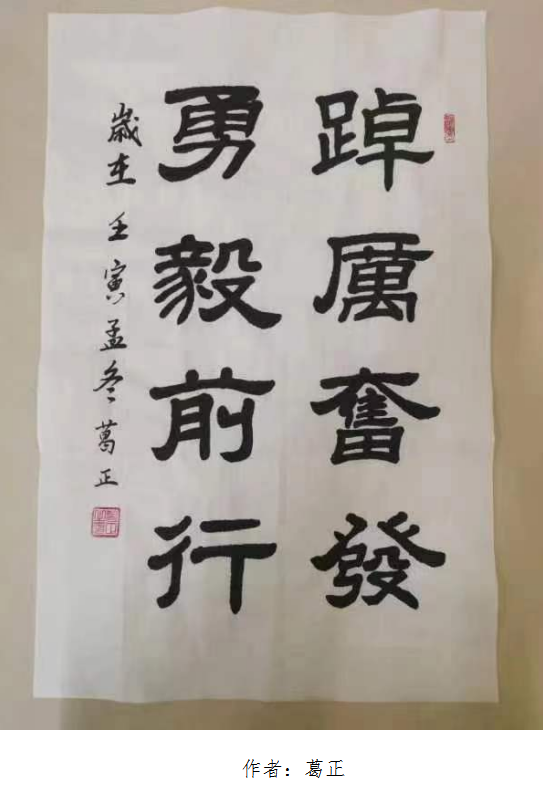 踔厲奮發
勇毅前行
歲在壬寅孟冬葛正
作者：葛正